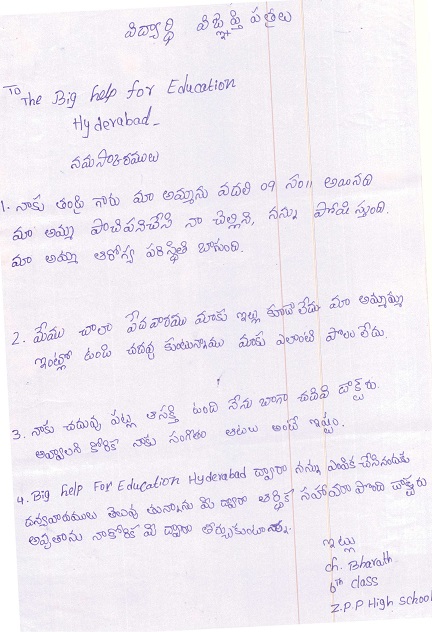 విద్యార్థి విజ్ఞప్తి పత్రాలు
To
The Big help for Education
Hyderabad-
నమస్కారములు
1. నాకు తండ్రి గారు మా అమ్మను వదలి 09 సం॥ అయినది
మా అమ్మ పాచిపనిచేసి నా చెల్లిని, నన్ను పోషిస్తుంది.
మా అమ్మ ఆరోగ్య పరిస్థితి బాగుంది.
2. మేము చాలా పేదవారము మాకు ఇల్లు కూడా లేదు మా అమ్మమ్మ
ఇంట్లో ఉండి చదవు కుంటున్నాము మాకు ఎలాంటి పొలం లేదు.
3. నాకు చదువు పట్ల ఆసక్తి ఉంది నేను బాగా చదివి డాక్టర్
అవ్వాలని కోరిక నాకు సంగీతం ఆటలు అంటే ఇష్టం.
4. Big help For Education Hyderabad ద్వారా నన్ను ఎంపిక చేసినందుకు
దన్యవాదములు తెలుపు తున్నాను మీ ద్వారా ఆర్థిక సహాయం పొంది డాక్టరు
అవుతాను నాకోరిక మీ ద్వారా తీర్చుకుంటాను.
ఇట్లు
ch. Bharath
6th class
Z.P.P High School